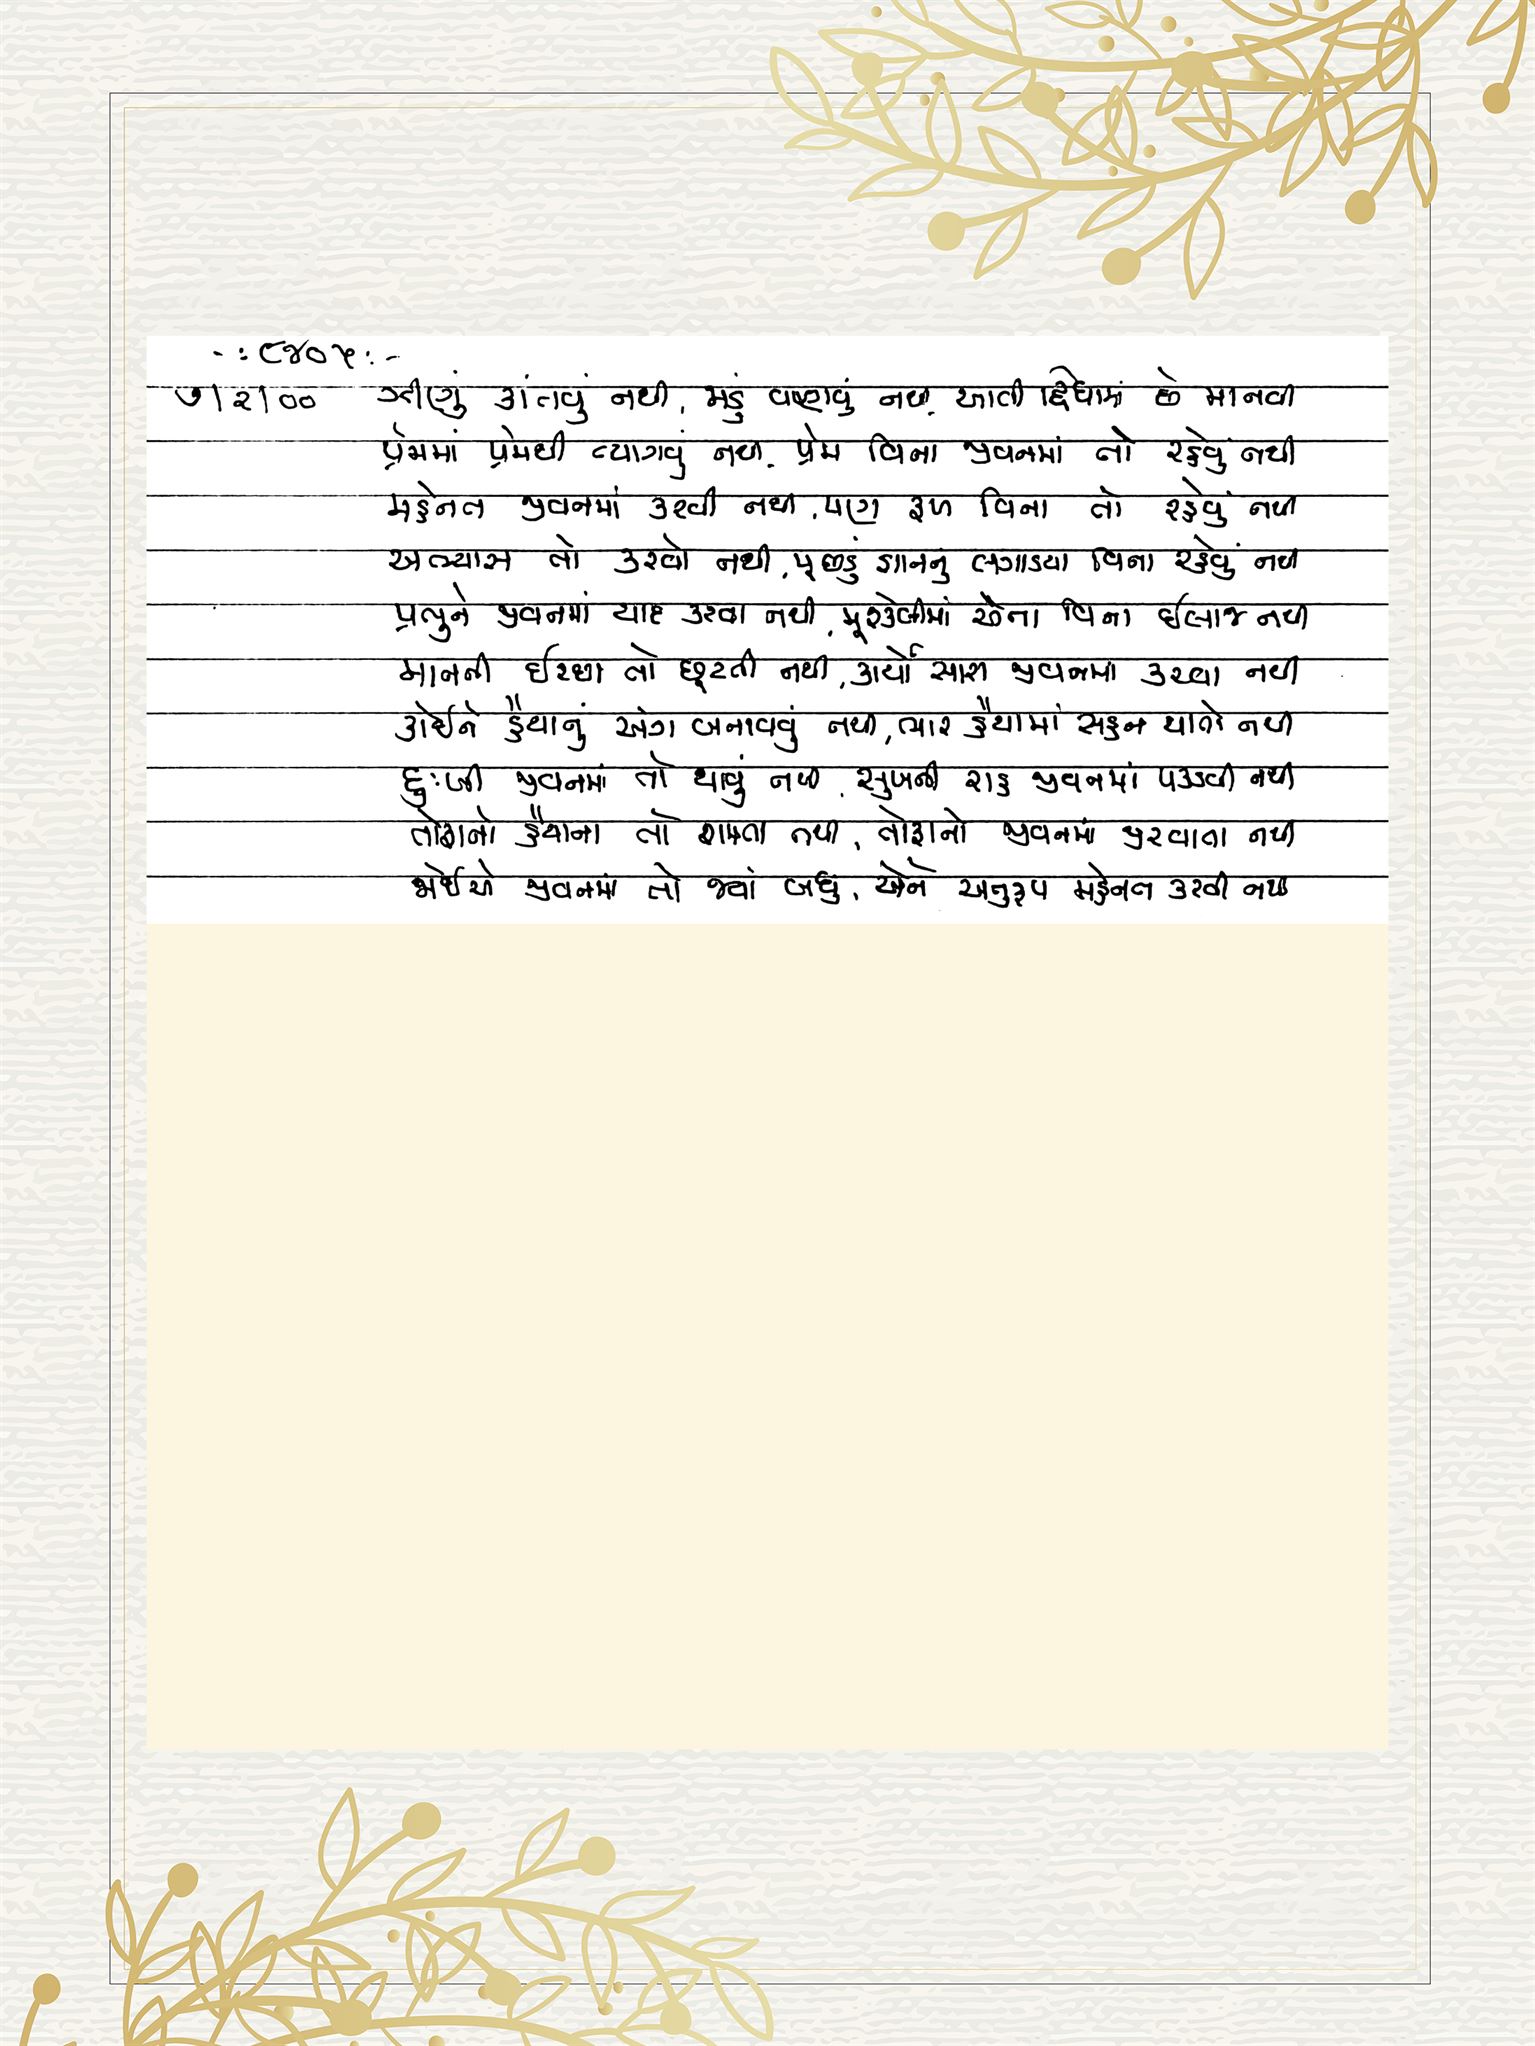 -:૮૪૦૫:-
૭/૨/૦૦ ઝીણું કાંતવું નથી, જાડું વણવું નથી, આવી દ્વિધામાં છે માનવી
પ્રેમમાં પ્રેમથી ત્યાગવું નથી, પ્રેમ વિના જીવનમાં તો રહેવું નથી
મહેનત જીવનમાં કરવી નથી, પણ ફળ વિના તો રહેવું નથી
અભ્યાસ તો કરવો નથી, પૂછડું જ્ઞાનનું લગાડયા વિના રહેવું નથી
પ્રભુને જીવનમાં યાદ કરવા નથી, મૂશ્કેલીમાં એના વિના ઈલાજ નથી
માનની ઈચ્છા તો છૂટતી નથી, કાર્યો સારા જીવનમાં કરવા નથી
કોઈને હૈયાનું અંગ બનાવવું નથી, ભાર હૈયામાં સહન થાતો નથી
દુઃખી જીવનમાં તો થાવું નથી, સુખની રાહ જીવનમાં પકડવી નથી
તોફાનો હૈયાના તો શમતા નથી, તોફાનો જીવનમાં જીરવાતા નથી
જોઈએ જીવનમાં તો જ્યાં બધું, એને અનુરૂપ મહેનત કરવી નથી